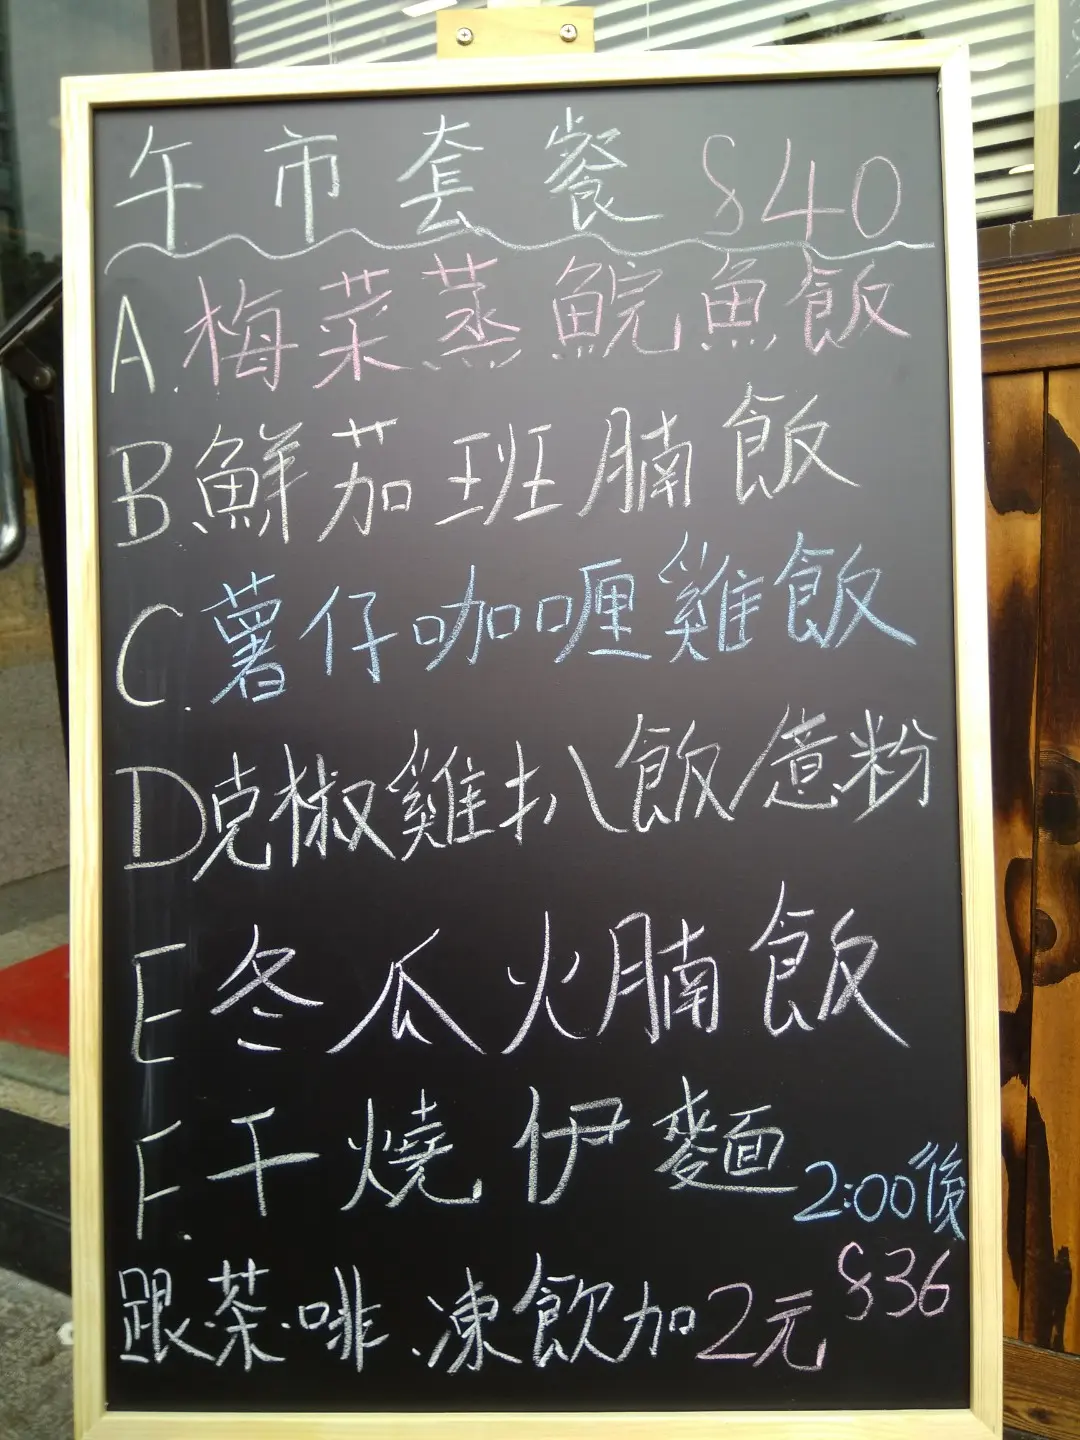 午市套餐 $40
A.梅菜蒸鯇魚飯
B.鮮茄班腩飯
C.薯仔咖喱雞飯
D克椒雞扒飯/意粉
E冬瓜火腩飯
F.干燒伊麵
2:00後
$36
跟茶.啡.凍飲加2元